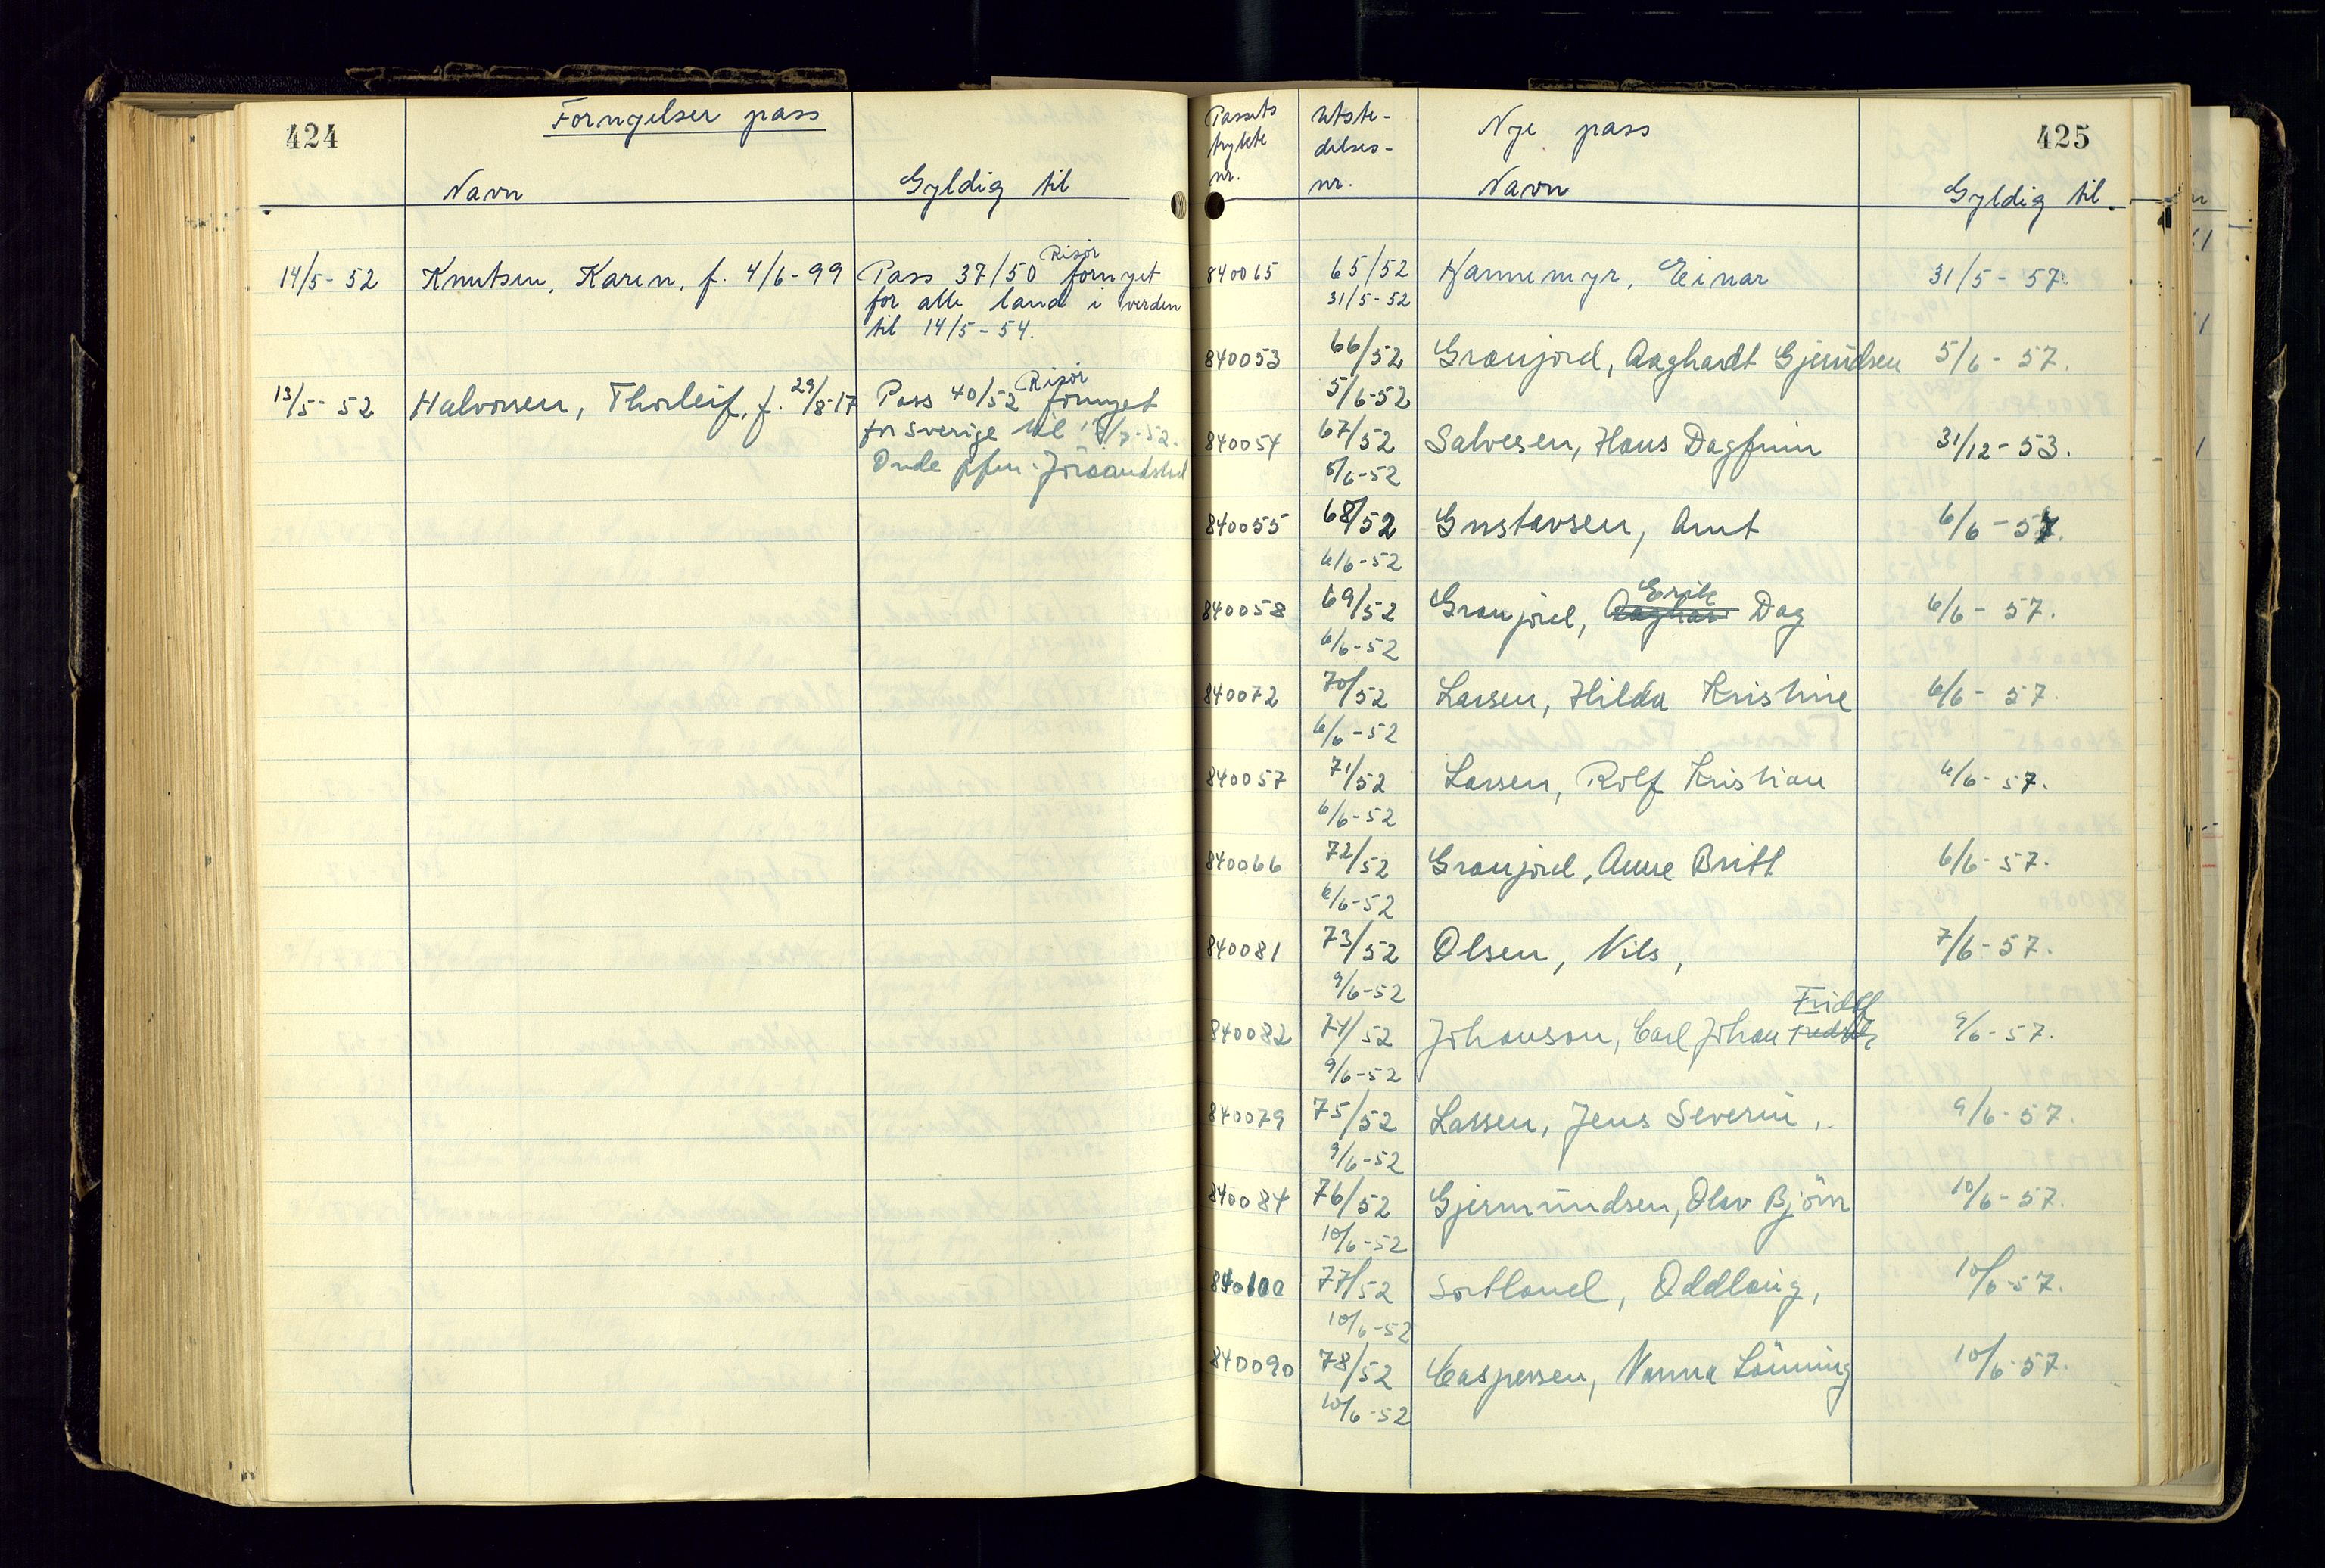 424
Fornyelser pass
Navn
Gyldig til
14/5-52 Knutsen, Karen, f. 4/6-99 Pass 37/50 Risör fornyet
for alle land i verden
til 14/5-54.
13/5-52 Halvorsen, Thorleif, f. 29/8-17 Pass 40/52 Risör fornyet
for Sverige til
Passets trykte nr.
Utste-delses-nr.
Nye pass
425
Navn
Gyldig til.
840065 65/52 Hannemyr, Einar 31/5-57.
31/5-52
840053 66/52 Grønjord, Aaghardt Gjerudsen 5/6-57.
5/6-52
840054 67/52 Salvesen, Hans Dagfinn 31/12-53.
5/6-52
840055 68/52 Gustavsen, Arnt 6/6-57.
6/6-52
840058 69/52 Grønjord, Erik Dag 6/6-57.
6/6-52
840072 70/52 Larsen, Hilda Kristine 6/6-57.
6/6-52
840057 71/52 Larsen, Rolf Kristian 6/6-57.
6/6-52
840066 72/52 Grønjord, Anne Britt 6/6-57.
6/6-52
840081 73/52 Olsen, Nils, 7/6-57.
9/6-52
840082 74/52 Johanson, Carl Johan Fridlf 9/6-57.
9/6-52
840079 75/52 Larsen, Jens Severin, 9/6-57.
9/6-52
840084 76/52 Gjermundsen, Olav Björn 10/6-57.
10/6-52
840100 77/52 Sortland, Oddlaug, 10/6-57.
10/6-52
840090 78/52 Caspersen, Nanna Lönning 10/6-57.
10/6-52